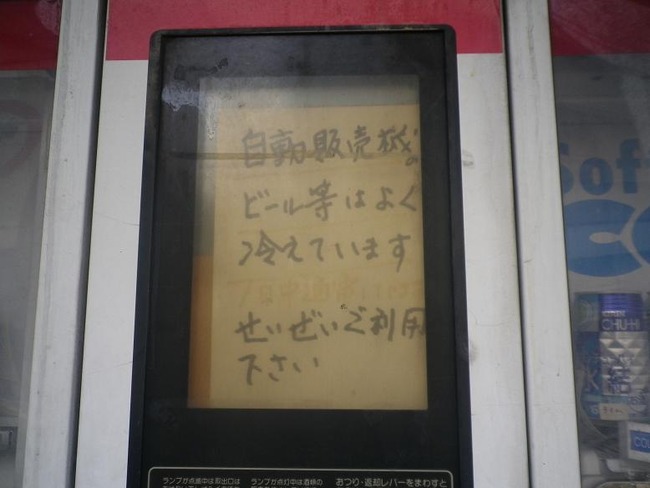 自動販売機の
ビール等はよく
冷えています
せいぜいご利用
下さい
ランプが点滅中は取出口は
ランプが点灯中は酒類の
おつり・返却レバーをまわすと
Sof
CHU-HI
氷結